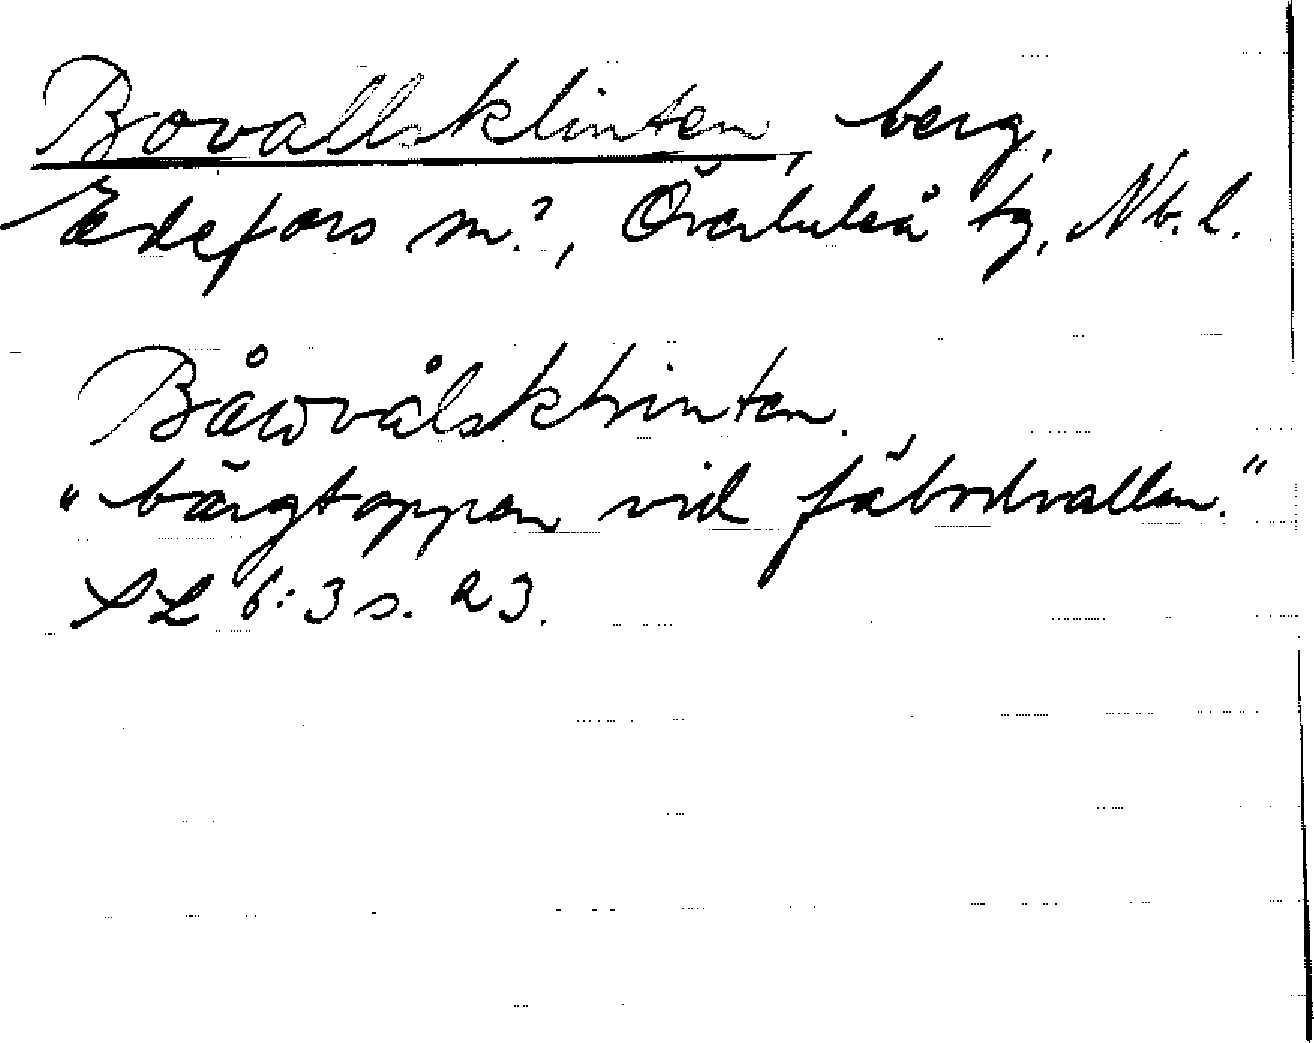 Bovallsklinten, berg,
Edefors sn?, Överluleå tg, Nb. l.
Båwvålsklinten.
"bärgtoppen vid fäbodvallen."
SL 6:3 s. 23.